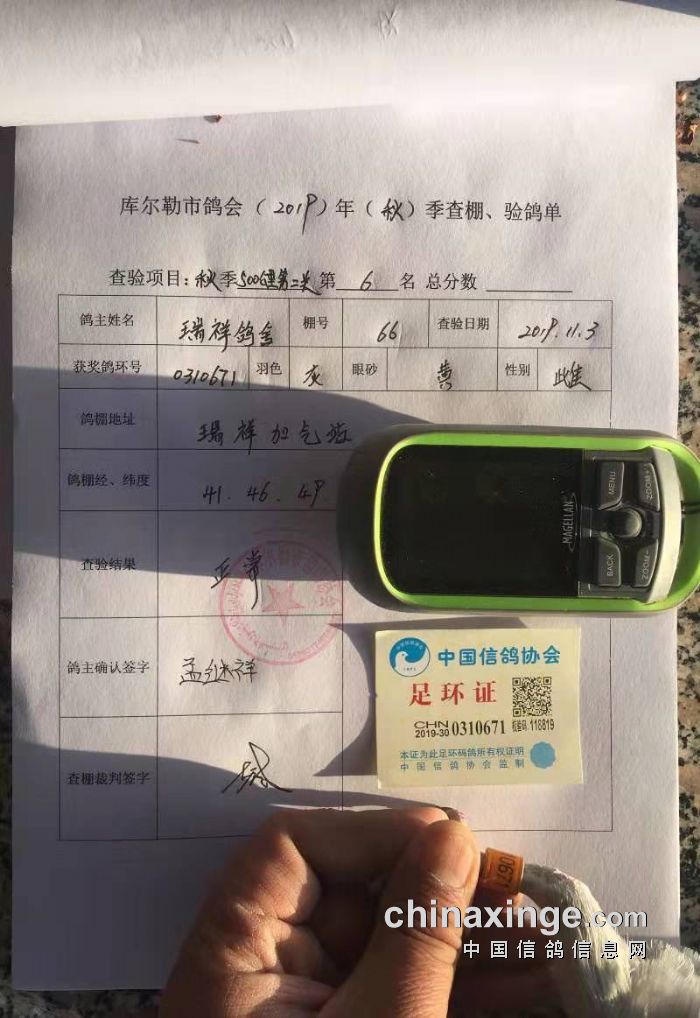 库尔勒市鸽会（2019）年（秋）季查棚、验鸽单
查验项目：秋季500公里第二关 第 6 名 总分数
鸽主姓名 瑞祥鸽舍 棚号 66 查验日期 2019.11.3
获奖鸽环号 0310671 羽色 灰 眼砂 黄 性别 雌
鸽棚地址 瑞祥加气站
鸽棚经、纬度 41.46.49
查验结果 正常
鸽主确认签字 孟继祥
查棚裁判签字
MAGELLAN
MENU
ZOOM+
BACK
ZOOM-
中国信鸽协会
足环证
CHN
2019-30 0310671 校验码:118819
本证为此足环码鸽所有权证明
中国信鸽协会监制
chinaxinge.com
中国信鸽信息网